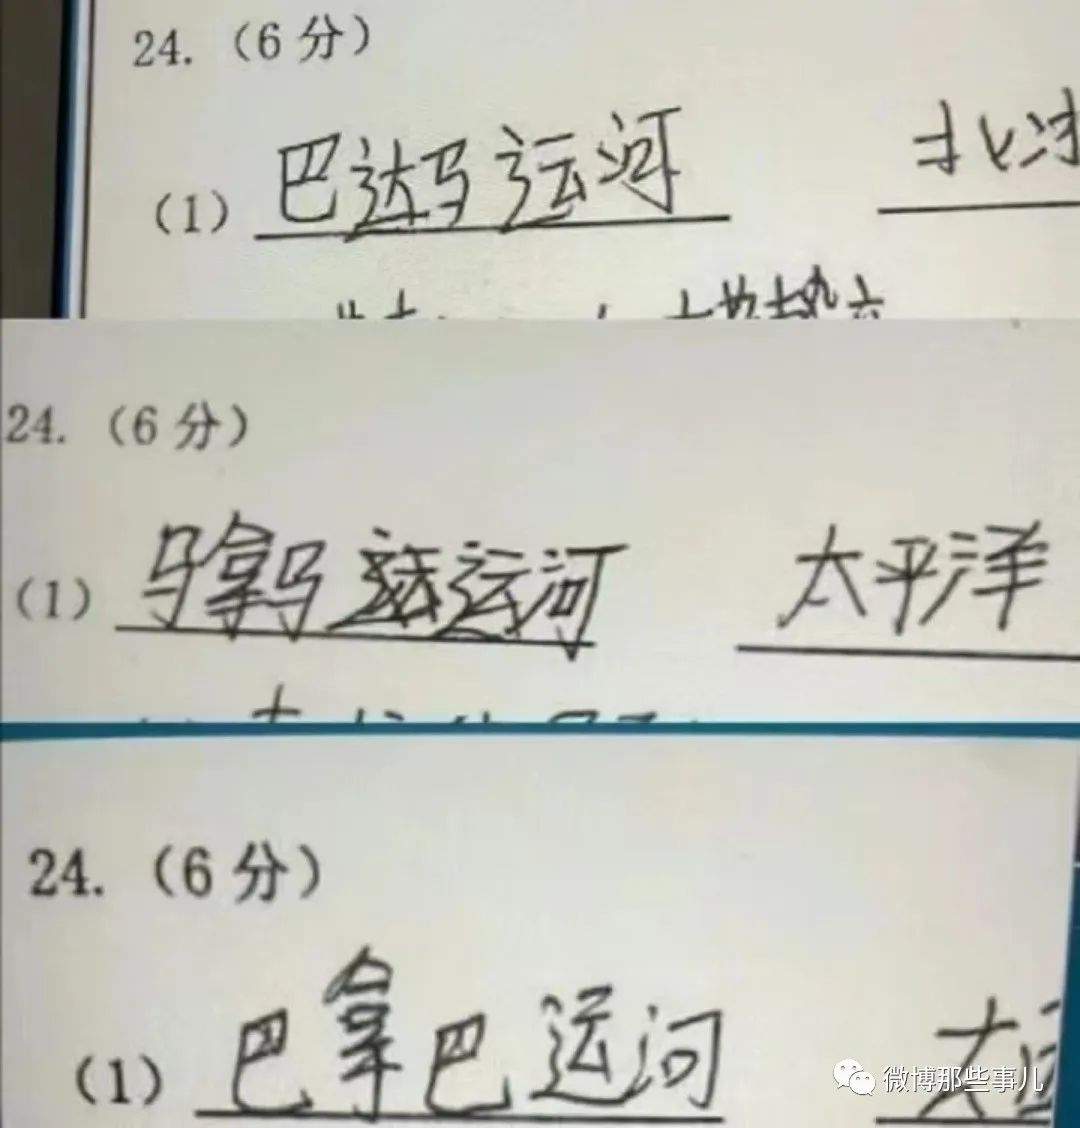 24.（6分）
(1) 巴达马运河 北冰
24.（6分）
(1) 马拿马运河 太平洋
24.（6分）
(1) 巴拿巴运河 大
微博那些事儿